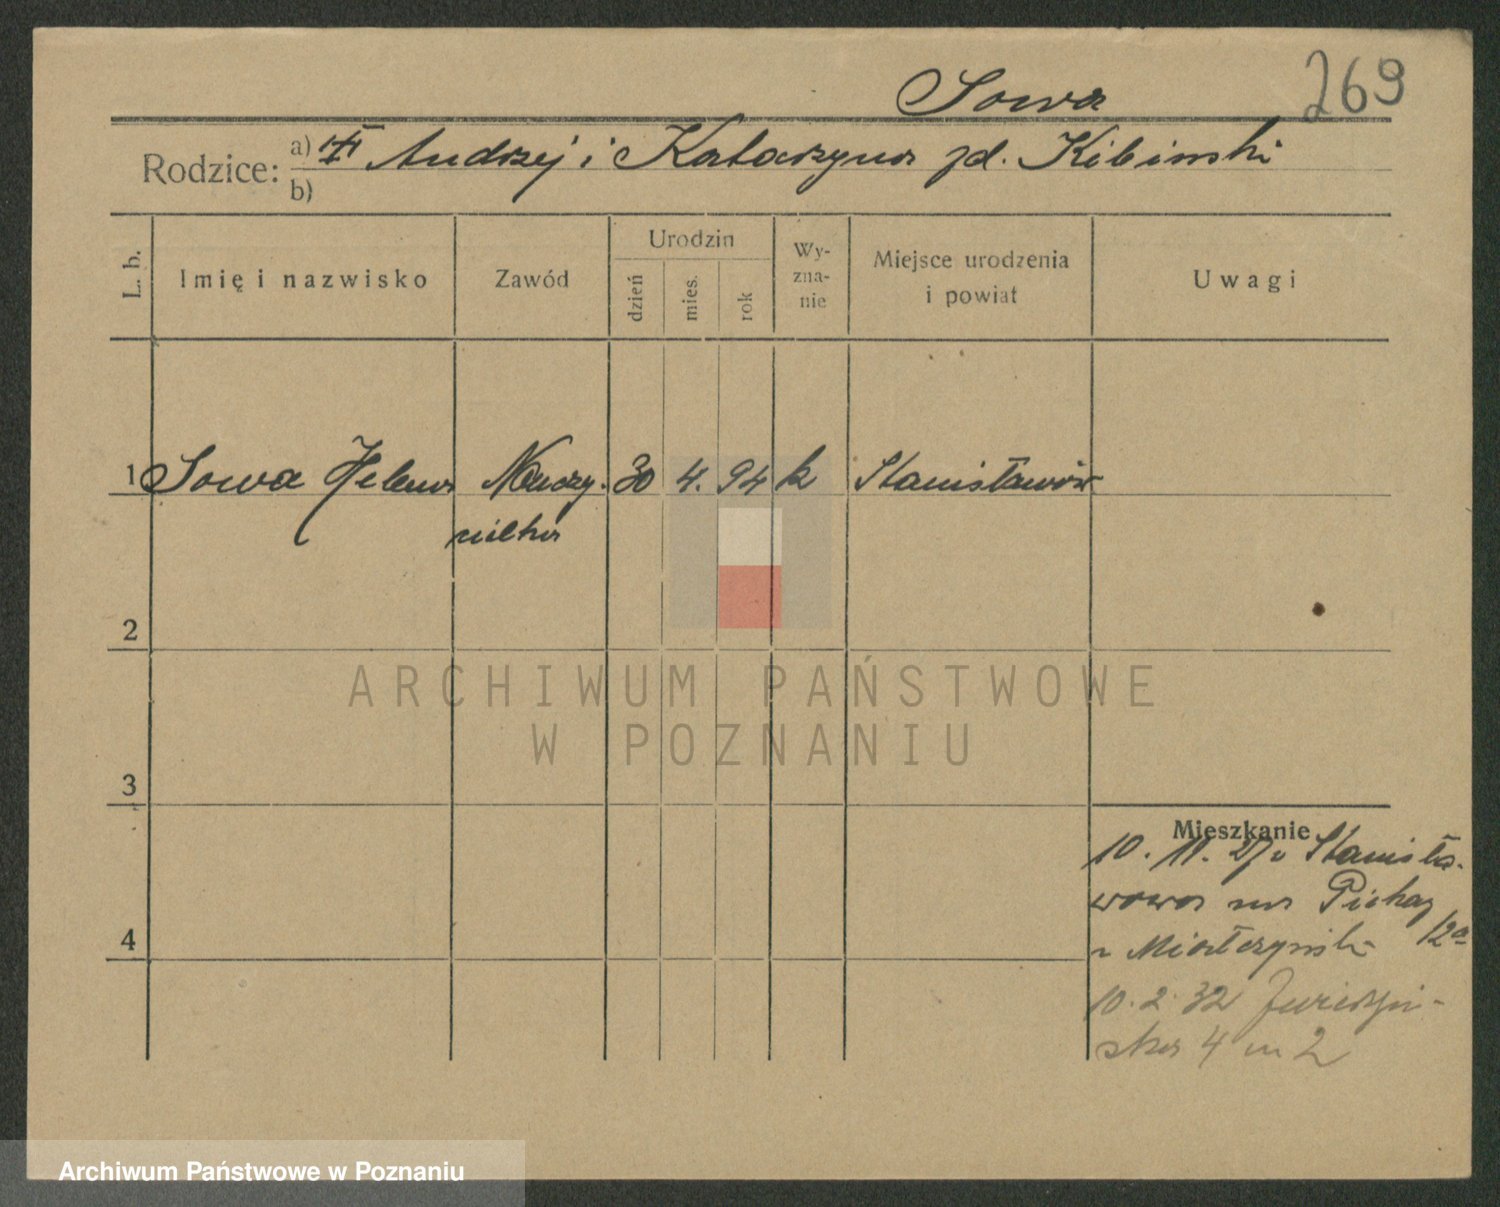 Sowa
269
Rodzice:
a) Andrzej i Katarzyna zd. Kibinski
b)
L. b.
Imię i nazwisko
Zawód
Urodzin
dzień
mies.
rok
Wy-
zna-
nie
Miejsce urodzenia
i powiat
Uwagi
1 Sowa Helena Nauczy- 30 4. 94 k Stanisławów
cielka
2
3
4
Mieszkanie
10. 11. 27 v Stanisła-
wowa na Piekary 12a
10. 2. 32
ska 4 m 2
ARCHIWUM PAŃSTWOWE
W POZNANIU
Archiwum Państwowe w Poznaniu